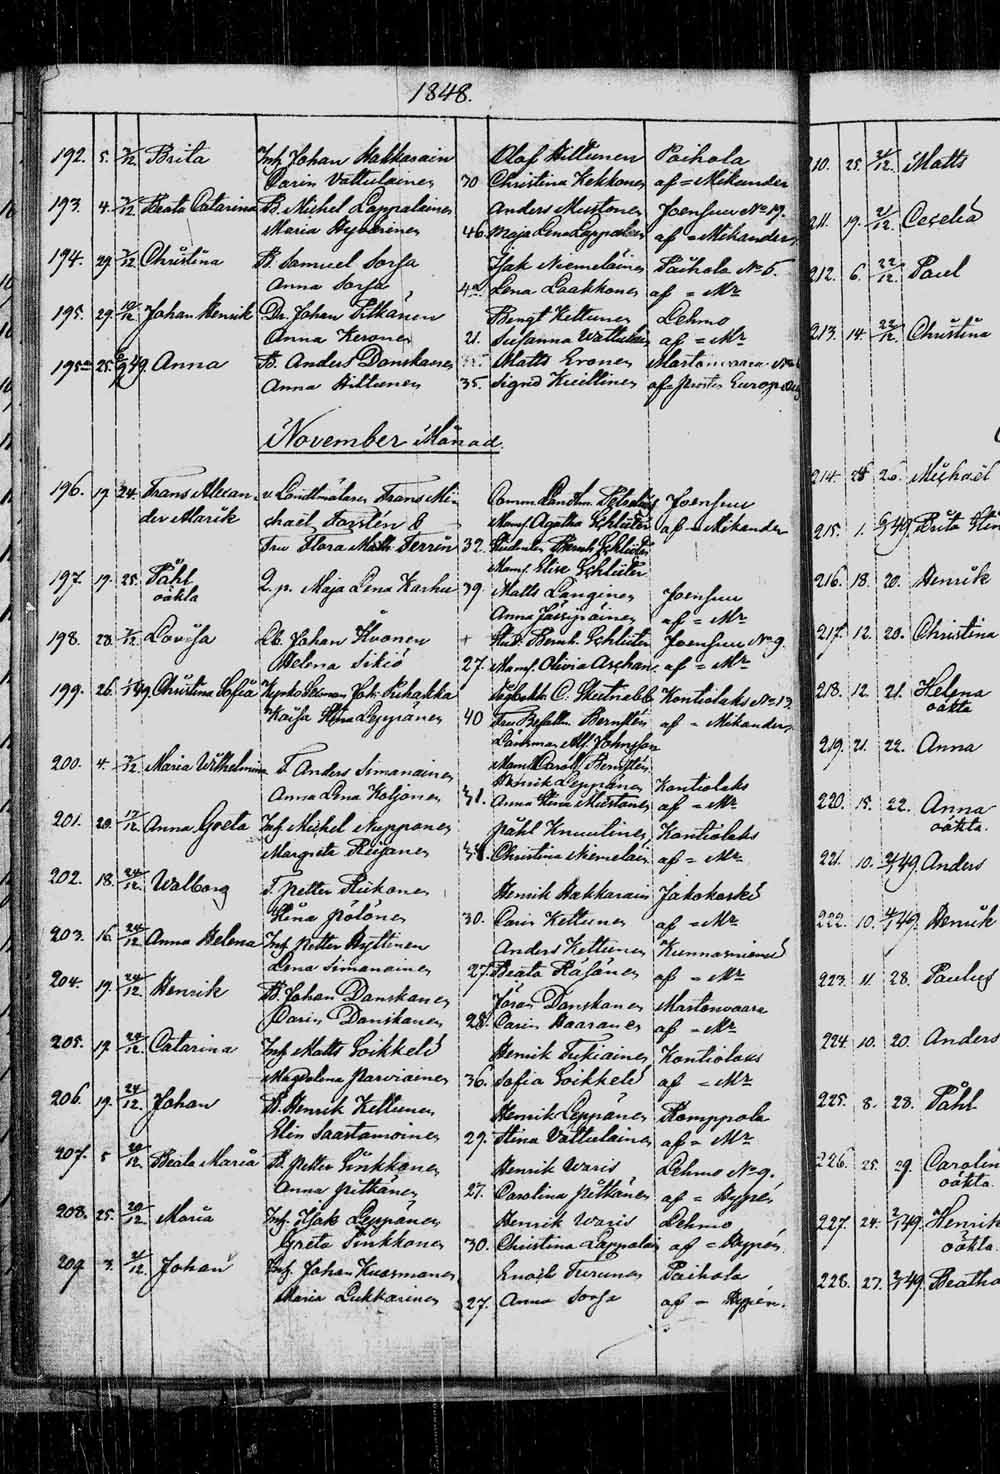 1848.
192. 5. 3/12 Brita Inh. Johan Hakkarain Olof Hiltunen Paihola
Carin Vattulainen 30 Christina Kekkonen af = Mikander
193. 4. 3/12 Beata Catarina B. Michel Lappalainen Anders Mustonen Joensuu No 19.
Maria Hyvärinen 46. Maja Lena Lappalain af = Mikander
194. 29. 3/12 Christina B. Samuel Sorsa Isak Niemeläinen Paihola No 5.
Anna Sorsa Lena Laakkonen af = Mr
195. 29. 10/12 Johan Henrik Dr. Johan Pitkänen Bengt Kettunen Lehmo
Anna Keronen 21. Susanna Vattulain af = Mr
195 25. 49. Anna B. Anders Danskanen Matts Eronen Martonvaara No
Anna Hiltunen 35. Sigrid Kuittinen af = Europaeus
November Månad.
196. 19. 24. Frans Alexan- v. Landtmätaren Frans Mi- Joensuu
der Alarik chaël Forstén & Mams. Agatha Schlüter af = Mikander
Fru Flora Math. Ferrin 32. Studenten Bernh. Schlüter
Mams. Elise Schlüter
197. 19. 25. Påhl Q. p. Maja Lena Karhu 39 Matts Langinen Joensuu
oäkta Anna af = Mr
198. 28. 3/12 Lovisa Johan Kvonen Stud. Bernh. Schlüter Joensuu No 9.
Helena Sikiö 27. Mams. Olivia Aschan af = Mr
199. 26. 49. Christina Sofia Pukakka Kontiolaks No 13
Kaisa Stina Leppänen 40 Fru Befallm. Bernstén af = Mikander
Länsman Alf. Johnsson
200. 4. 12 Maria Wilhelmina T. Anders Simanainen Mamsll Carol. Bernstén
Henrik Leppänen Kontiolaks
Anna Lena Koljonen 31. Anna Stina Mustonen af = Mr
201. 20. 17/12 Anna Greta Inh. Michel Nupponen Påhl Knuutinen Kontiolaks
Margreta Reijonen 38. Christina Niemeläin af = Mr
202. 18. 24/12 Walborg T. Petter Riikonen Henrik Hakkarain Jakokoski
Stina Pölönen 30. Carin Kettunen af = Mr
203. 16. 24/12 Anna Helena Inh. Petter Hyttinen Anders Kettunen Kunnasniemi
Lena Simanainen 27. Beata Räsänen af = Mr
204. 19. 24/12 Henrik B. Johan Danskanen Jöran Danskanen Martonvaara
Carin Danskanen 28. Carin Haaranen af = Mr
205. 17. 24/12 Catarina Inh. Matts Soikkeli Henrik Tukiainen Kontiolaks
Magdalena Parviainen 36. Sofia Soikkeli af = Mr
206. 19. 24/12 Johan B. Henrik Kettunen Henrik Leppänen Romppala
Elin Saastamoinen 29. Stina Vattulainen af = Mr
207. 5 20/12 Beata Maria B. Petter Sinkkonen Henrik Waris Lehmo No 9.
Anna Pitkänen 27. Carolina Pitkänen af = Hypén
208. 25. 20/12 Maria Inh. Isak Leppänen Henrik Waris Lehmo
Greta Sinkkonen 30. Christina Lappalain af = Hypén
209 3. 21/12. Johan Inh. Johan Kuosmanen Enoch Turunen Paihola
Maria Lukkarinen 27. Anna Sorsa af = Hypén.
210. 25. 21/12. Matts
211. 19. 21/12. Cecelia
212. 6. 22/12. Paul
213. 14. 22/12. Christina
214. 25 20. Michaël
215. 1. 49. Brita Stin
216. 18. 20. Henrik
217. 12. 20. Christina
218. 12. 21. Helena
oäkta
219. 21. 22. Anna
220. 15. 22. Anna
oäkta.
221. 10. 49. Anders
222. 10. 49. Henrik
223. 11 28. Paulus
224. 10. 20. Anders
225. 8. 28. Påhl
226. 25. 29. Carolin
oäkta.
227. 24. 49. Henrik
oäkta.
228. 27. 49. Beatha